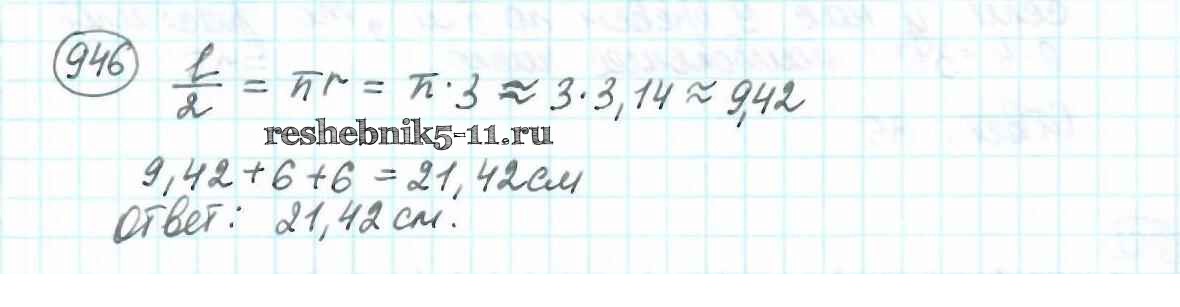 946
l/2 = πr = π·3 ≈ 3·3,14 ≈ 9,42
reshebnik5-11.ru
9,42+6+6 = 21,42см
Ответ: 21,42 см.